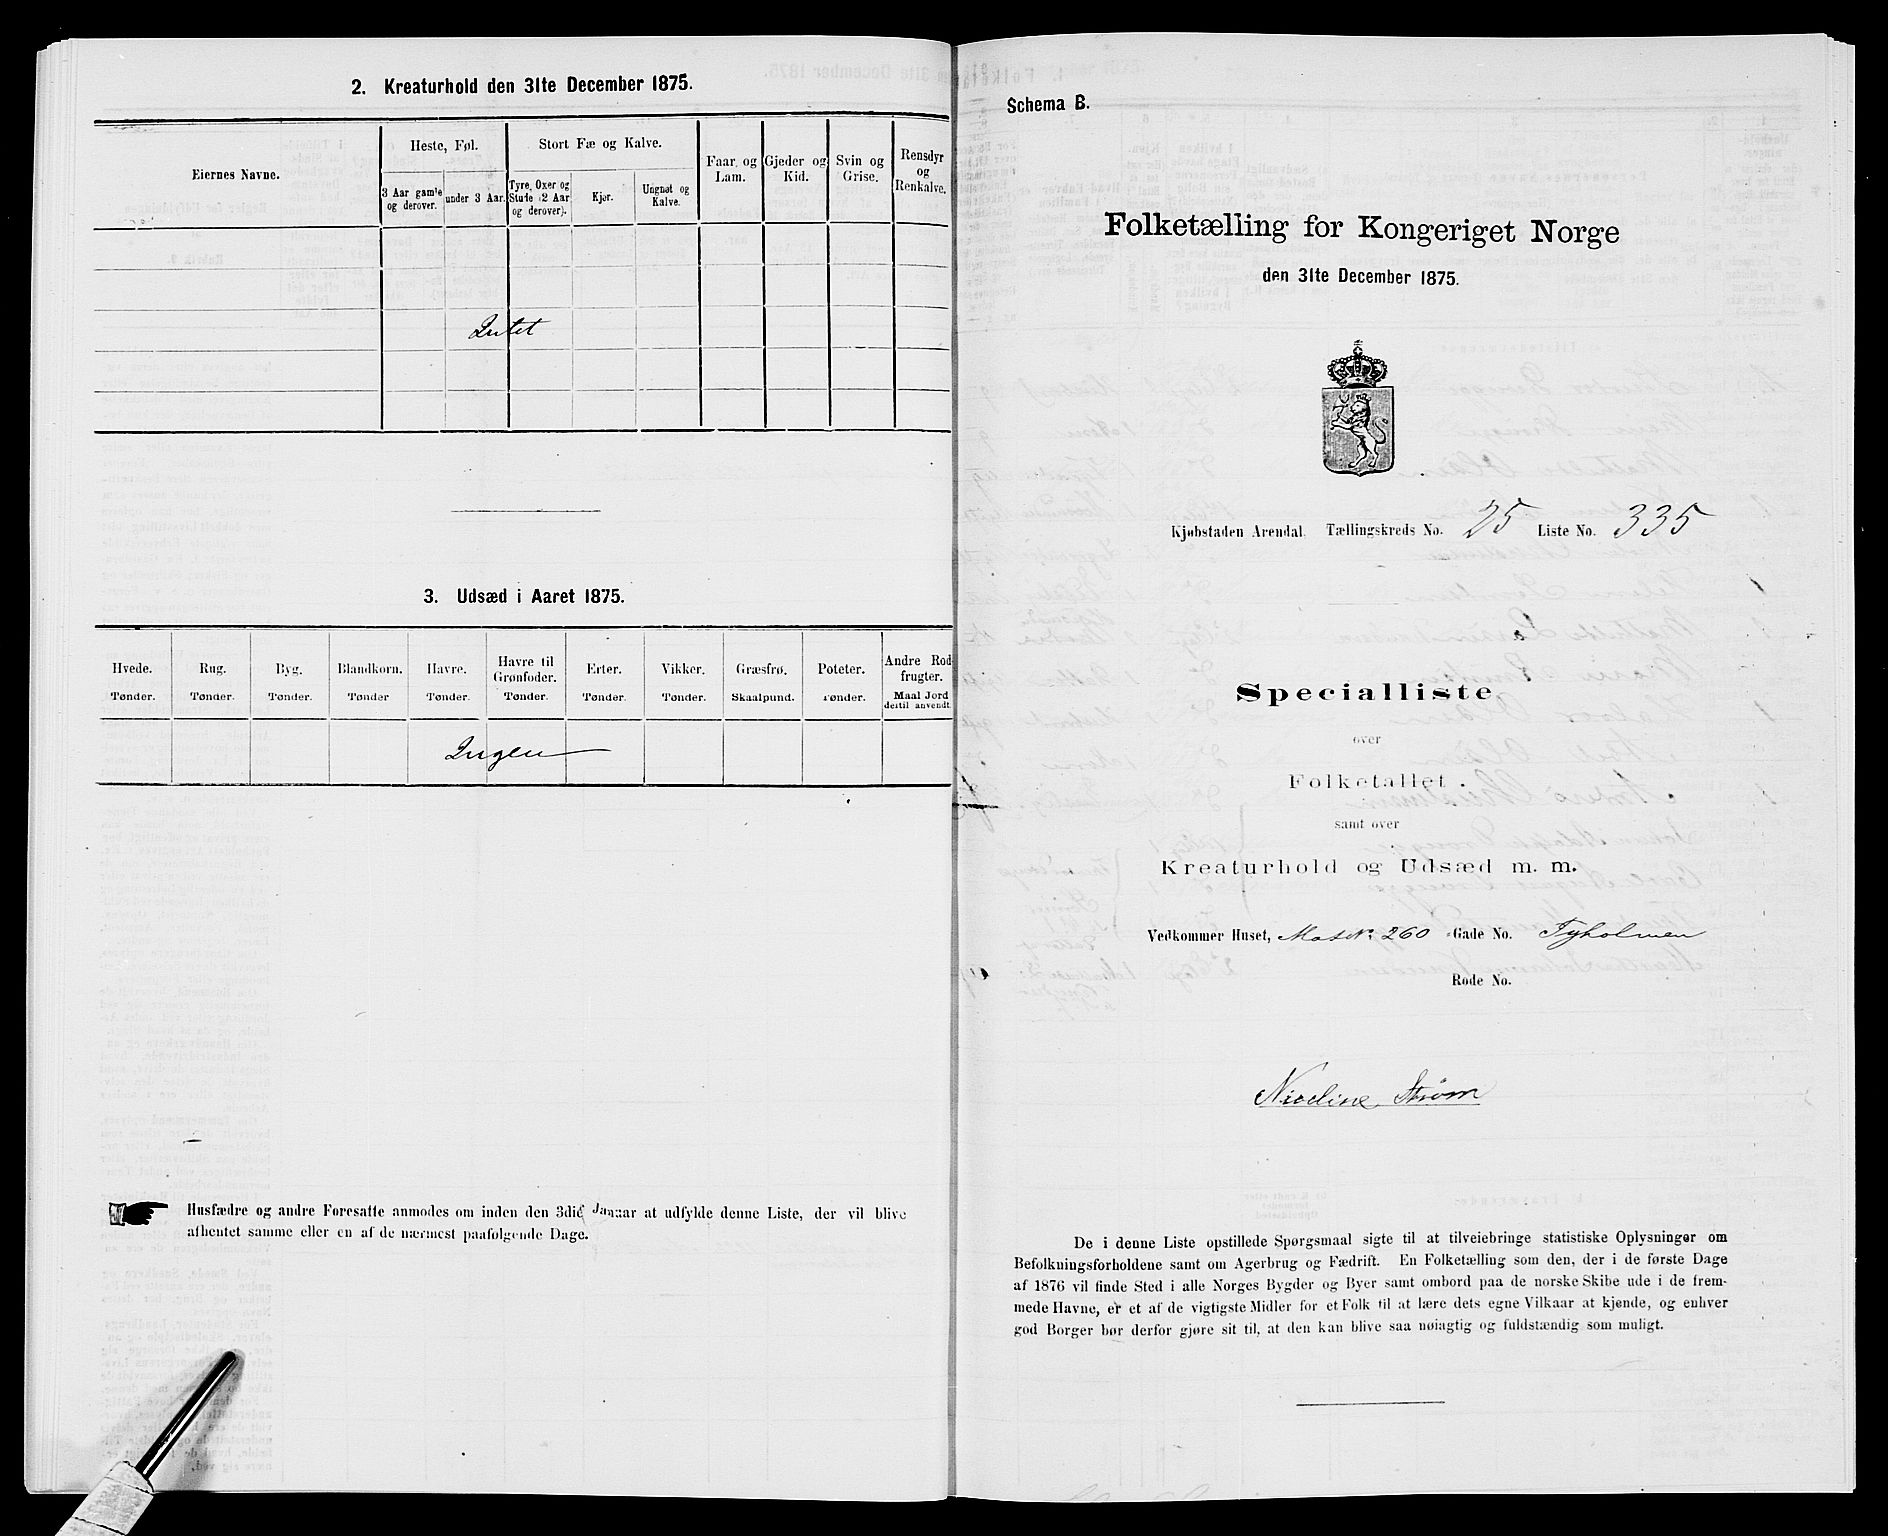 2. Kreaturhold den 31te December 1875.
Eiernes Navne.
Heste, Føl.
3 Aar gamle og derover.
under 3 Aar.
Stort Fæ og Kalve.
Tyre, Oxer og Stude (2 Aar og derover).
Kjør.
Ungnøt og Kalve.
Faar og Lam.
Gjeder og Kid.
Svin og Grise.
Rensdyr og Renkalve.
Intet
3. Udsæd i Aaret 1875.
Hvede. Rug. Byg. Blandkorn. Havre. Havre til Grønfoder. Erter. Vikker. Græsfrø. Poteter. Andre Rodfrugter.
Tønder. Tønder. Tønder. Tønder Tønder. Tønder. Tønder. Tønder. Skaalpund. Tønder. Maal Jord dertil anvendt.
Ingen
Husfædre og andre Foresatte anmodes om inden den 3die Januar at udfylde denne Liste, der vil blive
afhentet samme eller en af de nærmest paafølgende Dage.
Schema B.
Folketælling for Kongeriget Norge
den 31te December 1875.
Kjøbstaden Arendal. Tællingskreds No. 25 Liste No. 335
Specialliste
over
Folketallet
samt over
Kreaturhold og Udsæd m. m.
Vedkommer Huset, Mat No. 260 Gade No. Tyholmen
Rode No.
Nicoline Strøm
De i denne Liste opstillede Spørgsmaal sigte til at tilveiebringe statistiske Oplysninger om
Befolkningsforholdene samt om Agerbrug og Fædrift. En Folketælling som den, der i de første Dage
af 1876 vil finde Sted i alle Norges Bygder og Byer samt ombord paa de norske Skibe ude i de frem-
mede Havne, er et af de vigtigste Midler for et Folk til at lære dets egne Vilkaar at kjende, og enhver
god Borger bør derfor gjøre sit til, at den kan blive saa nøiagtig og fuldstændig som muligt.